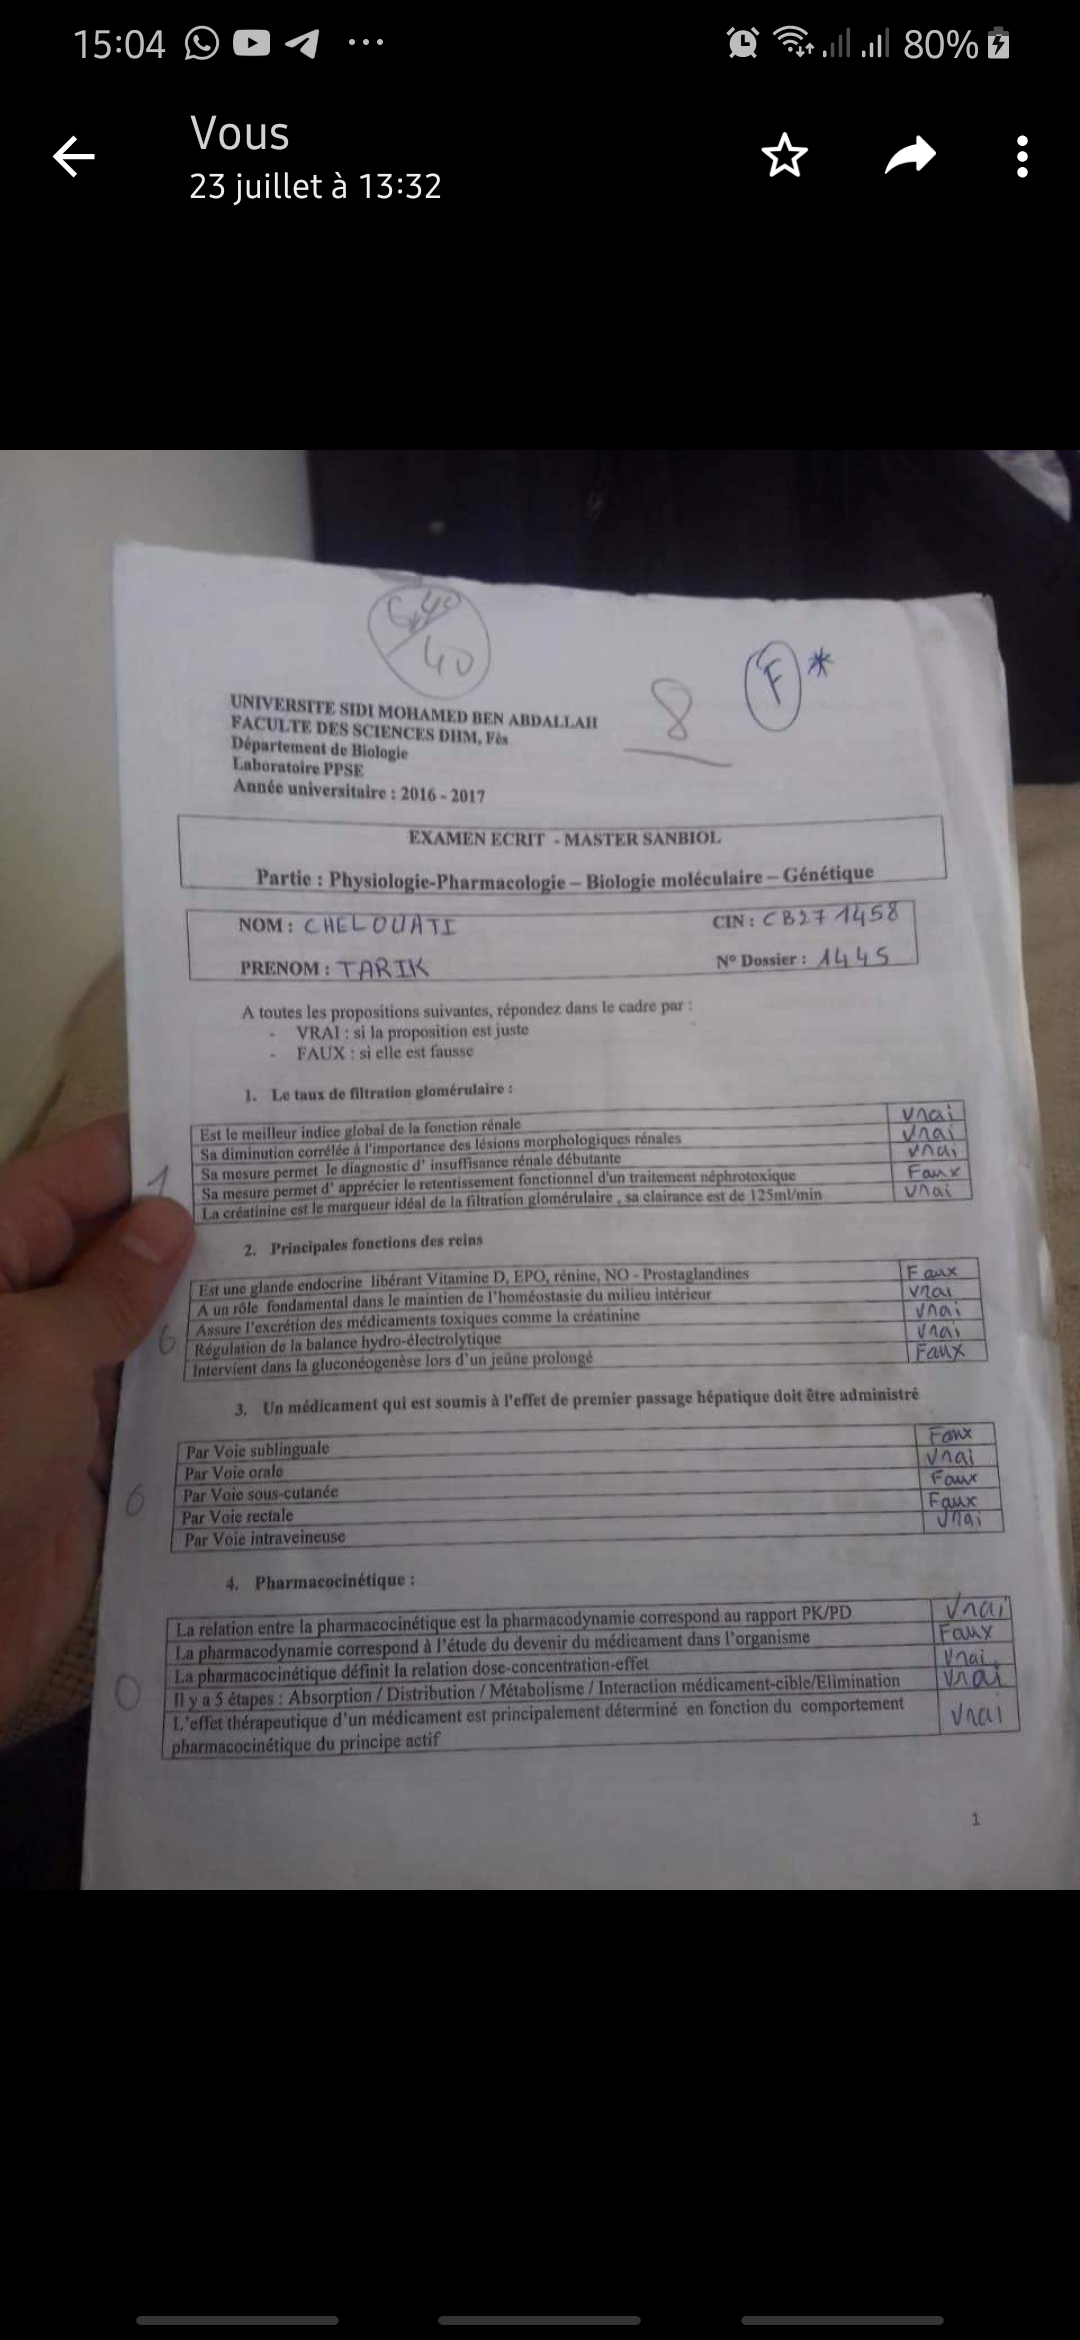 15:04
80%
Vous
23 juillet à 13:32
40
8
F *
UNIVERSITE SIDI MOHAMED BEN ABDALLAH
FACULTE DES SCIENCES DHM, Fès
Département de Biologie
Laboratoire PPSE
Année universitaire : 2016 - 2017
EXAMEN ECRIT - MASTER SANBIOL
Partie : Physiologie-Pharmacologie – Biologie moléculaire – Génétique
NOM : CHELOUATI CIN : CB271458
PRENOM : TARIK N° Dossier : 1445
A toutes les propositions suivantes, répondez dans le cadre par :
- VRAI : si la proposition est juste
- FAUX : si elle est fausse
1. Le taux de filtration glomérulaire :
Est le meilleur indice global de la fonction rénale vrai
Sa diminution corrélée à l'importance des lésions morphologiques rénales vrai
Sa mesure permet le diagnostic d' insuffisance rénale débutante vrai
1 Sa mesure permet d' apprécier le retentissement fonctionnel d'un traitement néphrotoxique Faux
La créatinine est le marqueur idéal de la filtration glomérulaire , sa clairance est de 125ml/min vrai
2. Principales fonctions des reins
Est une glande endocrine libérant Vitamine D, EPO, rénine, NO - Prostaglandines Faux
A un rôle fondamental dans le maintien de l'homéostasie du milieu intérieur vrai
Assure l'excrétion des médicaments toxiques comme la créatinine vrai
0 Régulation de la balance hydro-électrolytique vrai
Intervient dans la gluconéogenèse lors d'un jeûne prolongé Faux
3. Un médicament qui est soumis à l'effet de premier passage hépatique doit être administré
Par Voie sublinguale Faux
Par Voie orale vrai
0 Par Voie sous-cutanée Faux
Par Voie rectale Faux
Par Voie intraveineuse vrai
4. Pharmacocinétique :
La relation entre la pharmacocinétique est la pharmacodynamie correspond au rapport PK/PD vrai
La pharmacodynamie correspond à l'étude du devenir du médicament dans l'organisme Faux
La pharmacocinétique définit la relation dose-concentration-effet vrai
0 Il y a 5 étapes : Absorption / Distribution / Métabolisme / Interaction médicament-cible/Elimination vrai
L'effet thérapeutique d'un médicament est principalement déterminé en fonction du comportement vrai
pharmacocinétique du principe actif
1